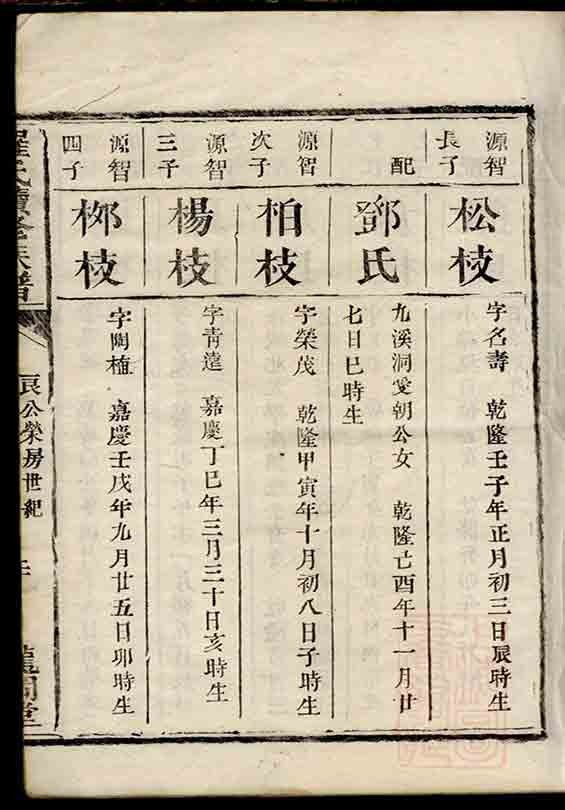 源智
長子
松枝
字名壽　乾隆壬子年正月初三日辰時生
配
鄧氏
九溪洞雯朝公女　乾隆己酉年十一月廿
七日巳時生
源智
次子
柏枝
字榮茂　乾隆甲寅年十月初八日子時生
源智
三子
楊枝
字青達　嘉慶丁巳年三月三十日亥時生
源智
四子
柳枝
字陶植　嘉慶壬戌年九月廿五日卯時生
氏續修族譜
良公榮房世紀